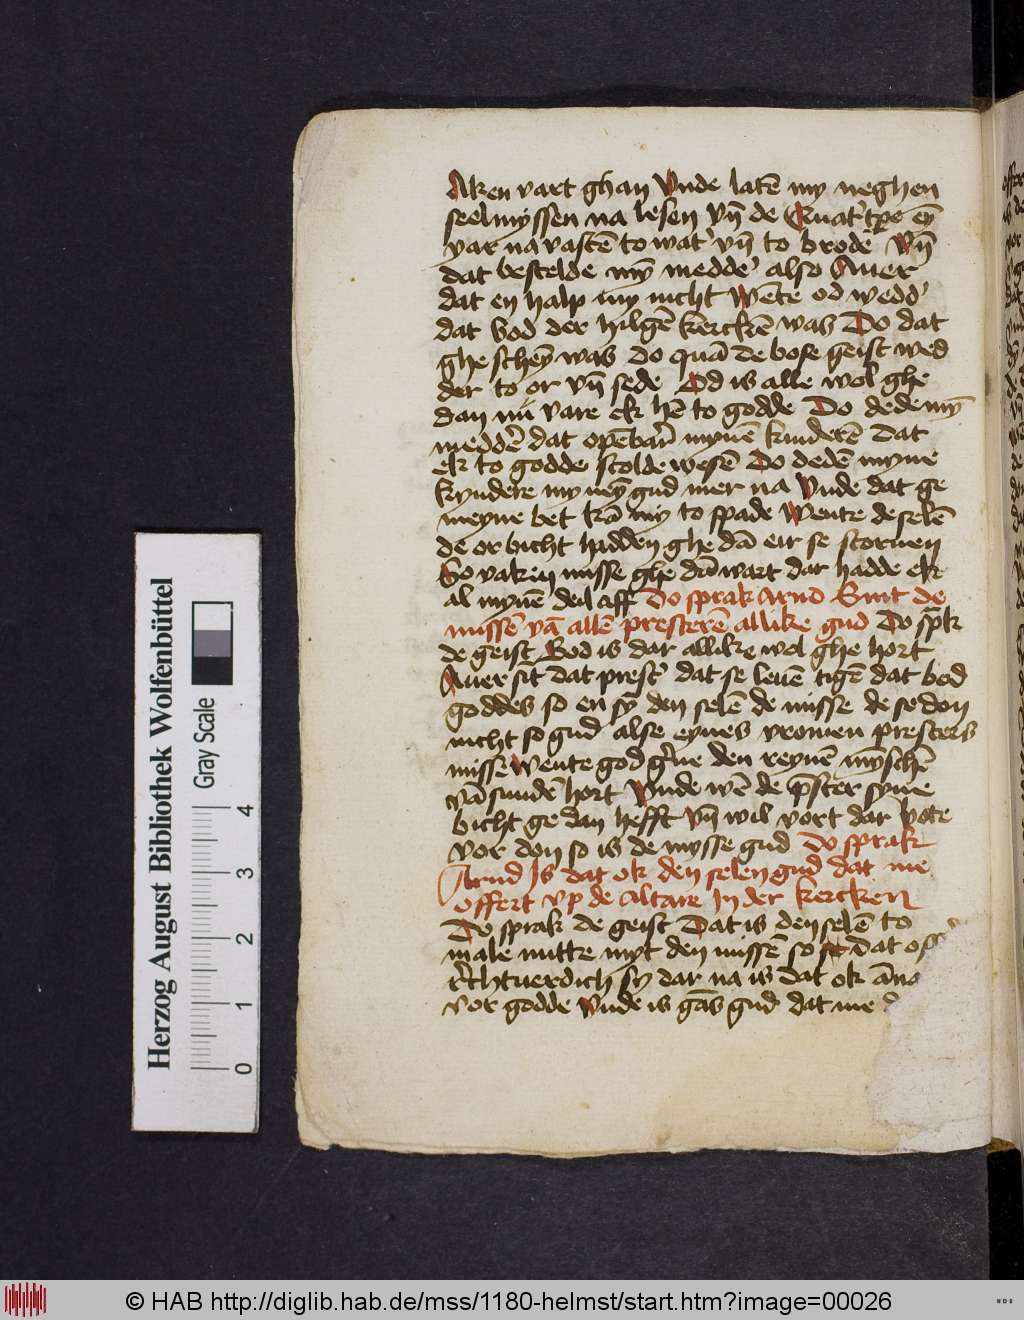 Aken vart ghan Vnde latē my neghen
seelmyssen na lesen vn̄ de Quat'tpe eȳ
yar na vastē to wat' vn̄ to brode Vn̄
dat bestelde mȳ medde' also Auer
dat en halp my nicht Wēte od wedd'
dat bod der hilgē kerckē was Do dat
ghe scheȳ was do quā de bose geist wed
der to or vn̄ sede Od is alle wol ghe
dan nu vare ek hē to godde Do dede mȳ
meddē dat opēbar mynē kinderē dat
ek to godde scolde wesē Do dedē myne
kyndere my neȳ gud mer na Vnde dat ge
meyne bet kā my to spade Wente de selē
de or bicht hadden ghe dā eir se storuen
So vaken misse ghe dā wart dar hadde ek
al mynē deil aff Do sprak Arnd Sint de
missē vā allē presterē allike gud Do spk
de geist God is dar allike wol ghe hort
Auer sit dat prest' dat se leuē tigē dat bod
goddes so en sȳ den selē de misse de se don
nicht so gud alse eynes vromen presters
misse Wente god g'ne den reynē mȳschē
vā sundē hort Vnde wē de pster syne
bicht ge dan hefft vn̄ wil vort dar bote
vor don so is de mysse gud Do sprak
Arnd Is dat ok den selen gud dat me
offert vp de altare In der kercken
Do sprak de geist Dat is den selē to
male nutte myt den missē so dat
r'chtuerdich sy dar na is dat ok
vor godde Vnde is gās gud dat me
Herzog August Bibliothek Wolfenbüttel
Gray Scale
0 1 2 3 4
© HAB http://diglib.hab.de/mss/1180-helmst/start.htm?image=00026